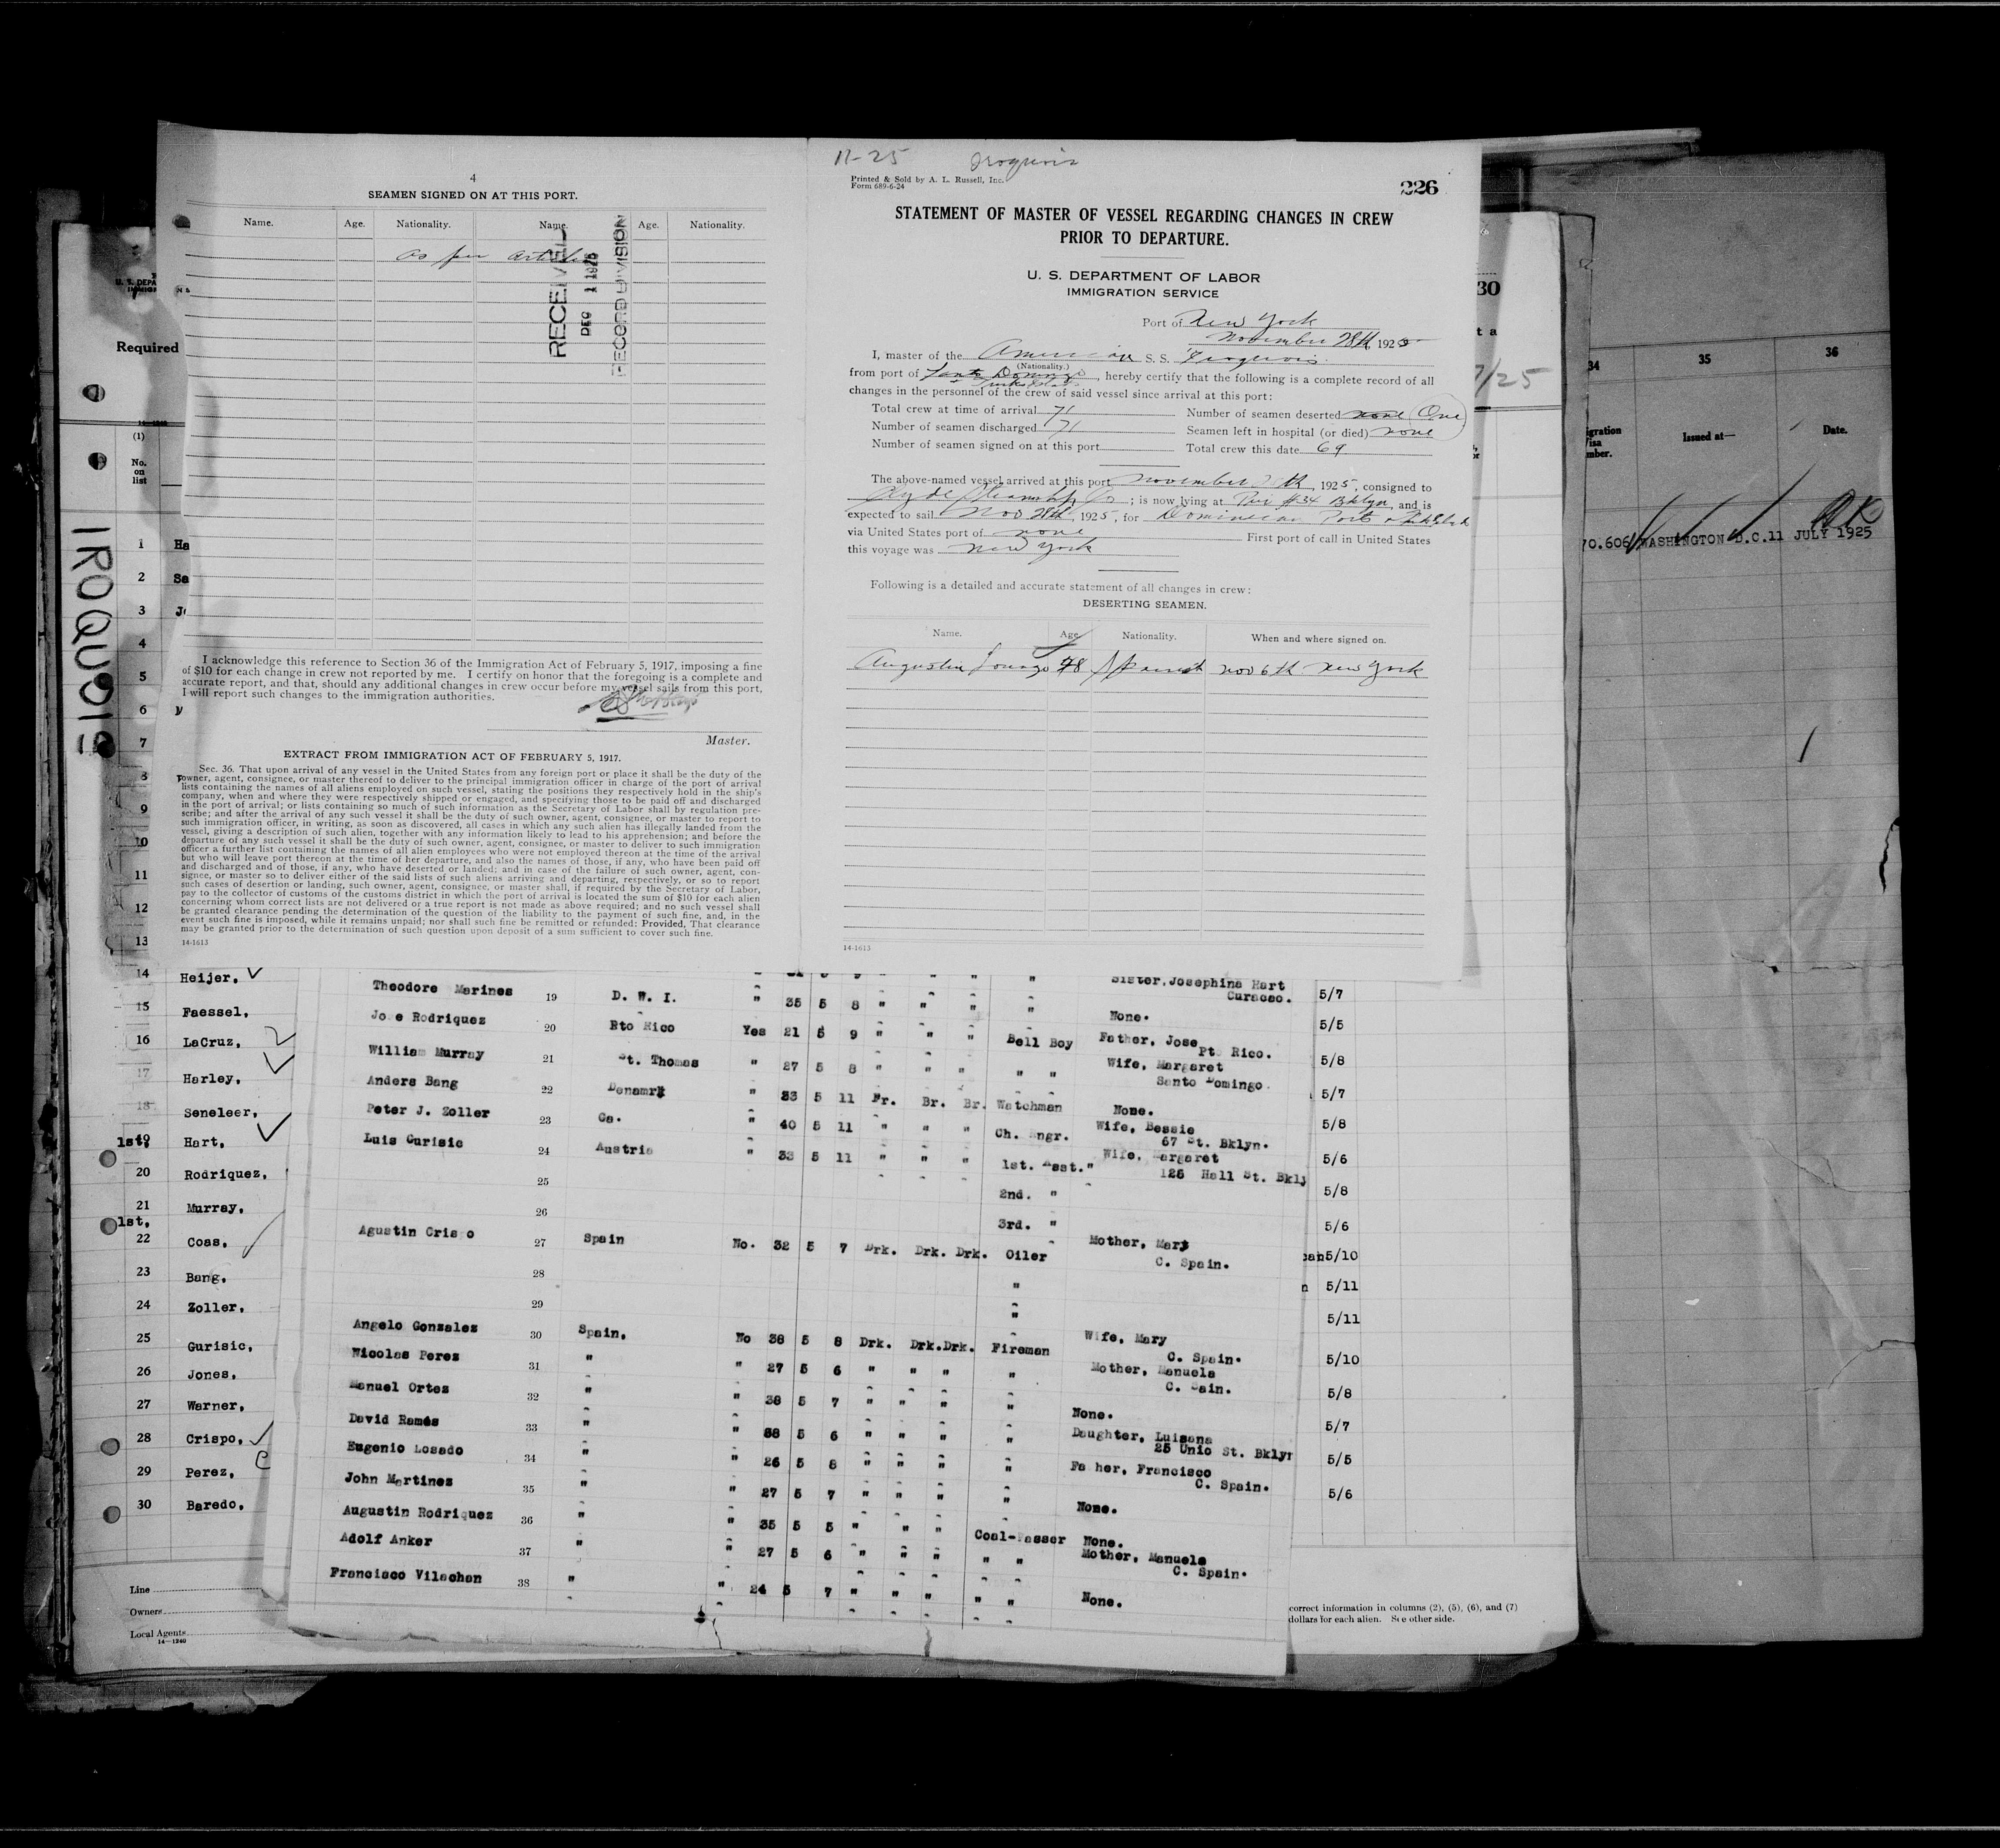 4
SEAMEN SIGNED ON AT THIS PORT.
Name. Age. Nationality. Name. Age. Nationality.
as per articles
RECEIVED
DEC 1 1925
RECORD DIVISION
I acknowledge this reference to Section 36 of the Immigration Act of February 5, 1917, imposing a fine
of $10 for each change in crew not reported by me. I certify on honor that the foregoing is a complete and
accurate report, and that, should any additional changes in crew occur before my vessel sails from this port,
I will report such changes to the immigration authorities.
Master.
EXTRACT FROM IMMIGRATION ACT OF FEBRUARY 5, 1917.
Sec. 36. That upon arrival of any vessel in the United States from any foreign port or place it shall be the duty of the
owner, agent, consignee, or master thereof to deliver to the principal immigration officer in charge of the port of arrival
lists containing the names of all aliens employed on such vessel, stating the positions they respectively hold in the ship's
company, when and where they were respectively shipped or engaged, and specifying those to be paid off and discharged
in the port of arrival; or lists containing so much of such information as the Secretary of Labor shall by regulation pre-
scribe; and after the arrival of any such vessel it shall be the duty of such owner, agent, consignee, or master to report to
such immigration officer, in writing, as soon as discovered, all cases in which any such alien has illegally landed from the
vessel, giving a description of such alien, together with any information likely to lead to his apprehension; and before the
departure of any such vessel it shall be the duty of such owner, agent, consignee, or master to deliver to such immigration
officer a further list containing the names of all alien employees who were not employed thereon at the time of the arrival
but who will leave port thereon at the time of her departure, and also the names of those, if any, who have been paid off
and discharged and of those, if any, who have deserted or landed; and in case of the failure of such owner, agent, con-
signee, or master so to deliver either of the said lists of such aliens arriving and departing, respectively, or so to report
such cases of desertion or landing, such owner, agent, consignee, or master shall, if required by the Secretary of Labor,
pay to the collector of customs of the customs district in which the port of arrival is located the sum of $10 for each alien
concerning whom correct lists are not delivered or a true report is not made as above required; and no such vessel shall
be granted clearance pending the determination of the question of the liability to the payment of such fine, and, in the
event such fine is imposed, while it remains unpaid; nor shall such fine be remitted or refunded: Provided, That clearance
may be granted prior to the determination of such question upon deposit of a sum sufficient to cover such fine.
14-1613
11-25 Iroquois
Printed & Sold by A. L. Russell, Inc.
Form 689-6-24
226
STATEMENT OF MASTER OF VESSEL REGARDING CHANGES IN CREW
PRIOR TO DEPARTURE.
U. S. DEPARTMENT OF LABOR
IMMIGRATION SERVICE
Port of New York
November 28th, 1925
I, master of the American S. S. Iroquois
(Nationality.)
from port of Santo Domingo, hereby certify that the following is a complete record of all
changes in the personnel of the crew of said vessel since arrival at this port:
Total crew at time of arrival 71 Number of seamen deserted none One
Number of seamen discharged 71 Seamen left in hospital (or died) none
Number of seamen signed on at this port Total crew this date 69
The above-named vessel arrived at this port November th, 1925, consigned to
Clyde Steamship Co; is now lying at Pier #34 Bklyn, and is
expected to sail Nov 28th, 1925, for Dominican Ports
via United States port of none First port of call in United States
this voyage was New York
Following is a detailed and accurate statement of all changes in crew:
DESERTING SEAMEN.
Name. Age. Nationality. When and where signed on.
Augustin 48 Spanish Nov 6th New York
14-1613
IROQUOIS
Required
(1)
No.
on
list
1 Ha
2 Sa
3
4
5
6
7
8
9
10
11
12
13
14 Heijer,
15 Faessel,
16 LaCruz,
17 Harley,
18 Seneleer,
1st. 19 Hart,
20 Rodriquez,
21 Murray,
1st. 22 Coas,
23 Bang,
24 Zoller,
25 Gurisic,
26 Jones,
27 Warner,
28 Crispo,
29 Perez,
30 Baredo,
Line
Owners
Local Agents
14-1240
Sister, Josephina Hart
Curacao.
Theodore Marines 19 D. W. I. " 35 5 8 " " " " None.
Jose Rodriquez 20 Pto Rico Yes 21 5 9 " " " Bell Boy Father, Jose
Pto Rico.
William Murray 21 St. Thomas " 27 5 8 " " " " " Wife, Margaret
Santo Domingo.
Anders Bang 22 Denamrk " 33 5 11 Fr. Br. Br. Watchman None.
Peter J. Zoller 23 Ga. " 40 5 11 " " " Ch. Engr. Wife, Bessie
67 St. Bklyn.
Luis Gurisic 24 Austria " 33 5 11 " " " 1st. Asst." Wife, Margaret
125 Hall St. Bkly
25 2nd. "
26 3rd. "
Agustin Crispo 27 Spain No. 32 5 7 Drk. Drk. Drk. Oiler Mother, Mary
C. Spain.
28 "
29 "
Angelo Gonzalez 30 Spain, No 36 5 8 Drk. Drk. Drk. Fireman Wife, Mary
C. Spain.
Nicolas Perez 31 " " 27 5 6 " " " " Mother, Manuela
C. Spain.
Manuel Ortez 32 " " 38 5 7 " " " " None.
David Ramos 33 " " 38 5 6 " " " " Daughter, Luisana
25 Unio St. Bklyn
Eugenio Losado 34 " " 26 5 8 " " " " Father, Francisco
C. Spain.
John Martinez 35 " " 27 5 7 " " " " None.
Augustin Rodriquez 36 " " 35 5 5 " " " Coal-Passer None.
Adolf Anker 37 " " 27 5 6 " " " " " Mother, Manuela
C. Spain.
Francisco Vilachan 38 " " 24 5 7 " " " " " None.
5/7
5/5
5/8
5/7
5/8
5/6
5/8
5/6
5/10
5/11
5/11
5/10
5/8
5/7
5/5
5/6
correct information in columns (2), (5), (6), and (7)
dollars for each alien. See other side.
30
7/25
34 35 36
Issued at— Date.
70.606 WASHINGTON D.C. 11 JULY 1925